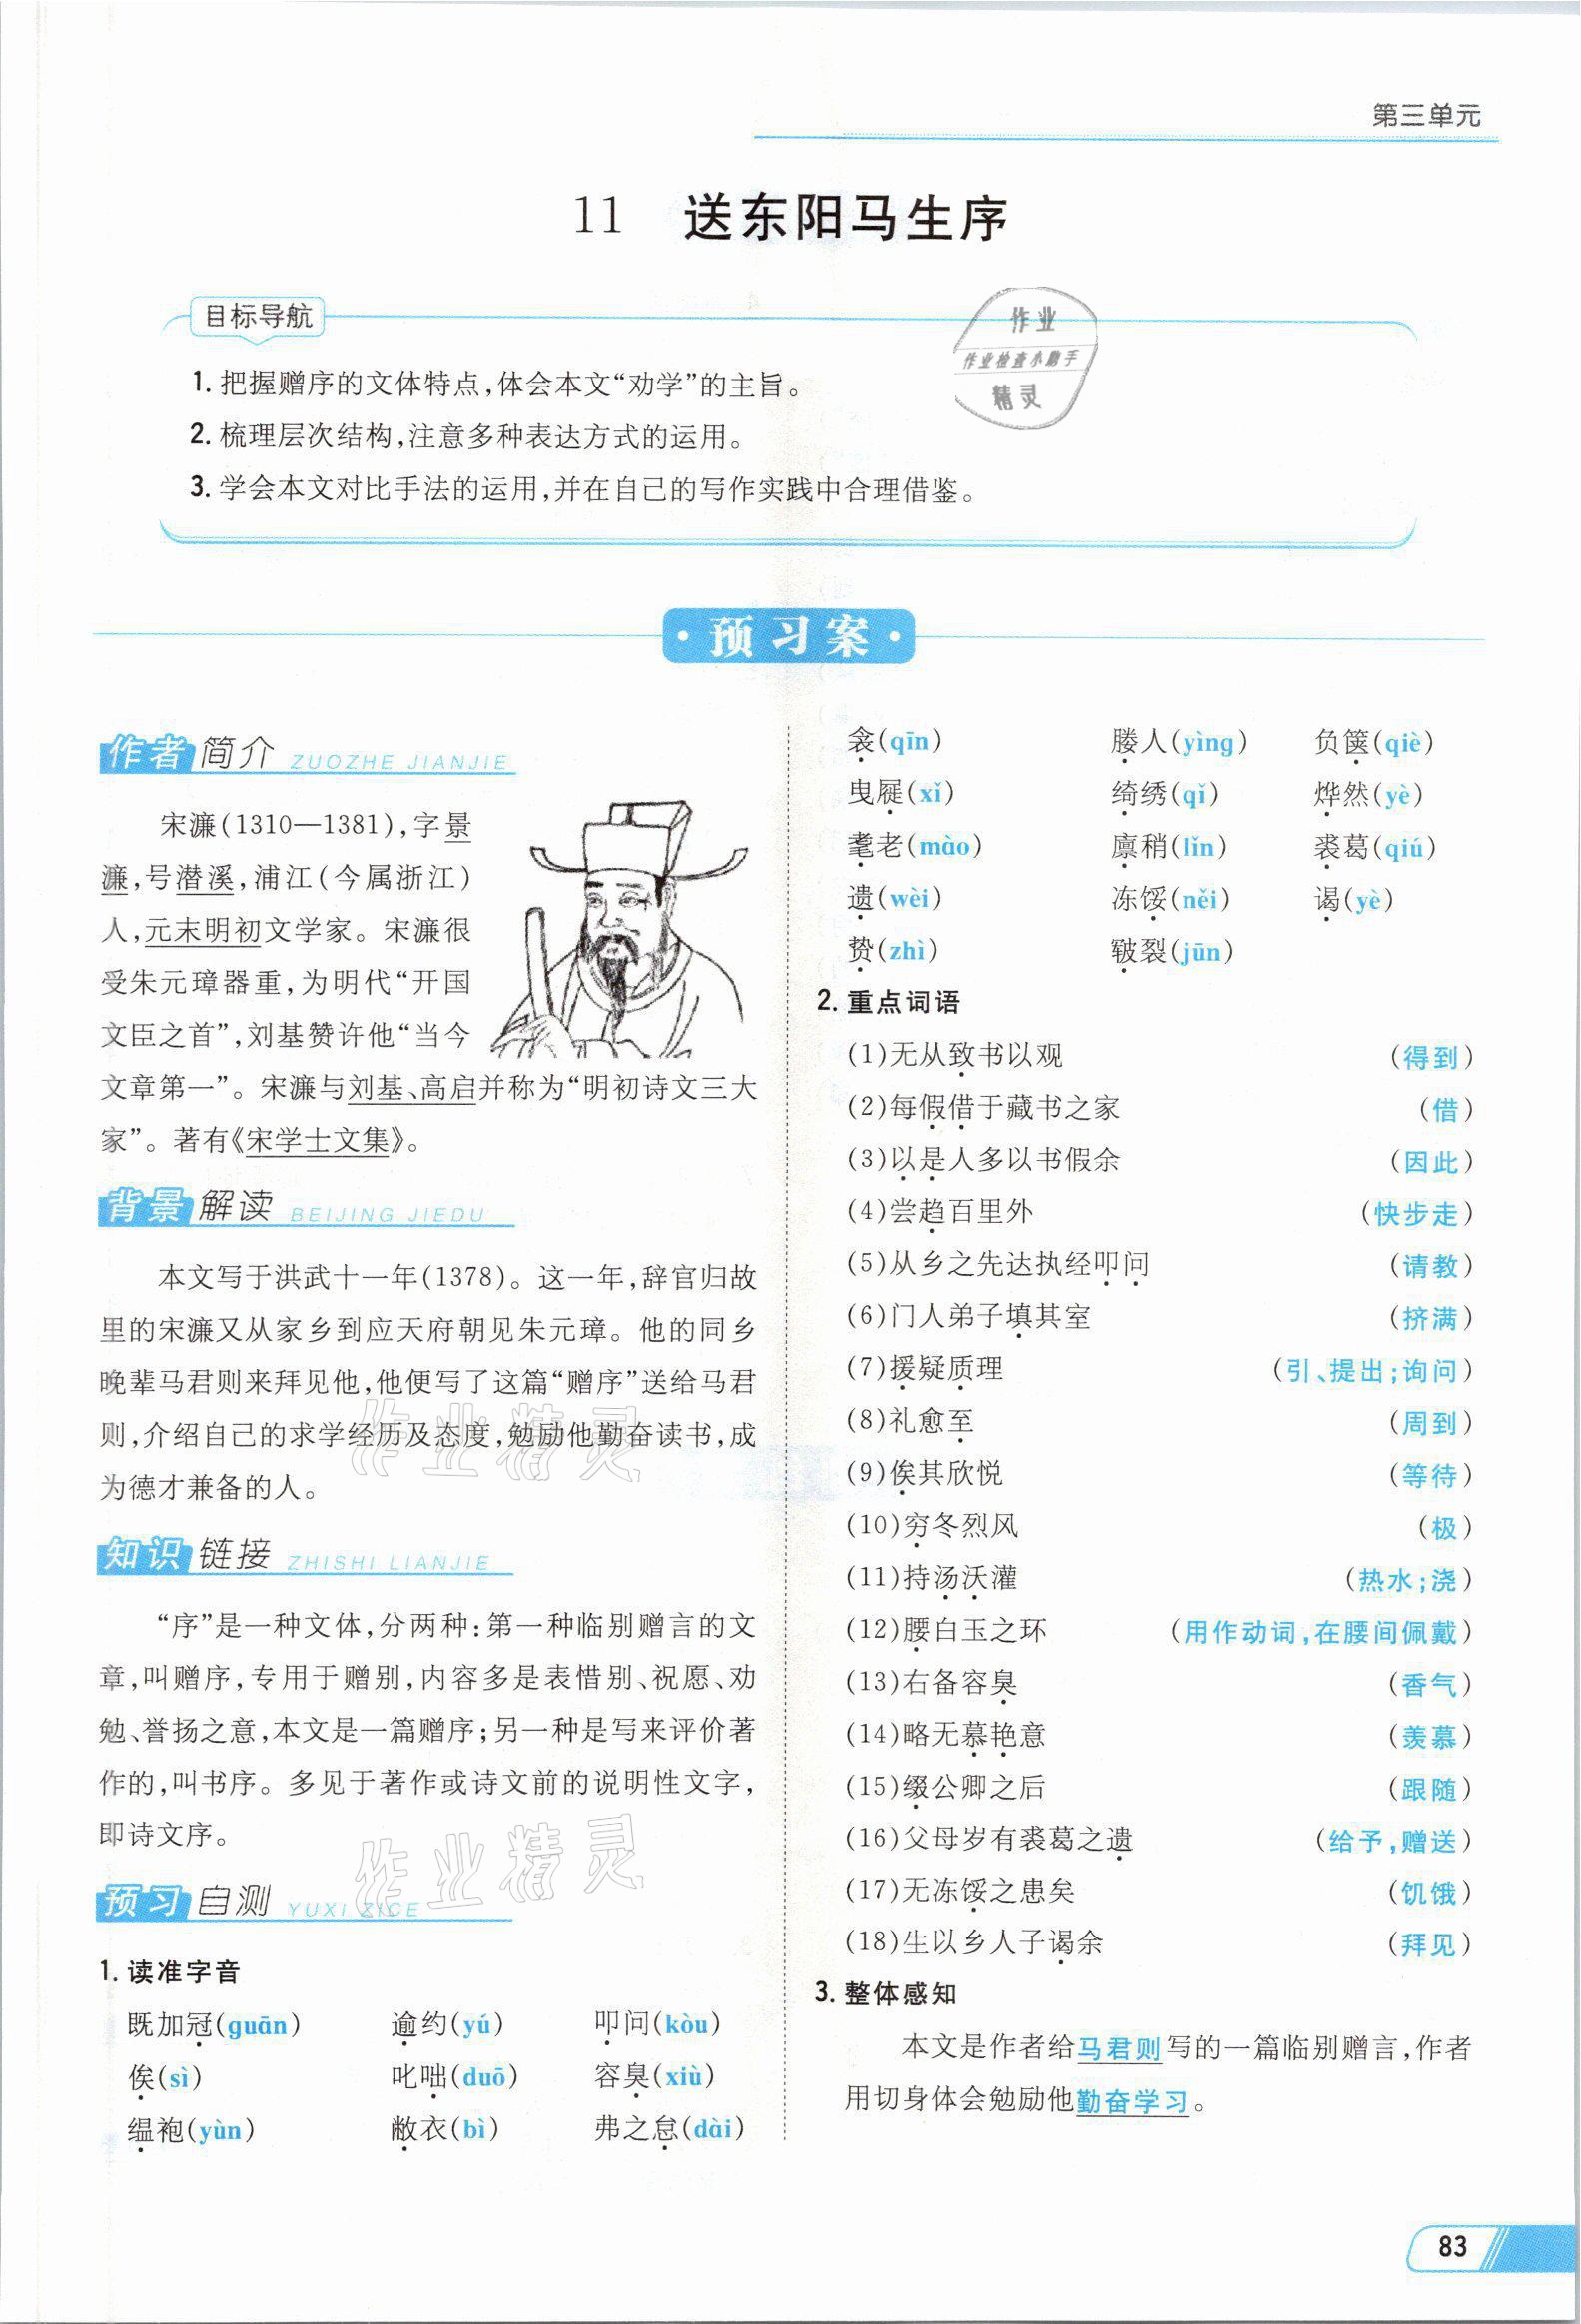 第三单元
11 送东阳马生序
目标导航
作业
作业检查小助手
精灵
1. 把握赠序的文体特点,体会本文“劝学”的主旨。
2. 梳理层次结构,注意多种表达方式的运用。
3. 学会本文对比手法的运用,并在自己的写作实践中合理借鉴。
·预习案·
作者简介 ZUOZHE JIANJIE
宋濂(1310—1381),字景
濂,号潜溪,浦江(今属浙江)
人,元末明初文学家。宋濂很
受朱元璋器重,为明代“开国
文臣之首”,刘基赞许他“当今
文章第一”。宋濂与刘基、高启并称为“明初诗文三大
家”。著有《宋学士文集》。
背景解读 BEIJING JIEDU
本文写于洪武十一年(1378)。这一年,辞官归故
里的宋濂又从家乡到应天府朝见朱元璋。他的同乡
晚辈马君则来拜见他,他便写了这篇“赠序”送给马君
则,介绍自己的求学经历及态度,勉励他勤奋读书,成
为德才兼备的人。
作业精灵
知识链接 ZHISHI LIANJIE
“序”是一种文体,分两种:第一种临别赠言的文
章,叫赠序,专用于赠别,内容多是表惜别、祝愿、劝
勉、誉扬之意,本文是一篇赠序;另一种是写来评价著
作的,叫书序。多见于著作或诗文前的说明性文字,
即诗文序。
作业精灵
预习自测 YUXI ZICE
1. 读准字音
既加冠(guān) 逾约(yú) 叩问(kòu)
俟(sì) 叱咄(duō) 容臭(xiù)
缊袍(yùn) 敝衣(bì) 弗之怠(dài)
衾(qīn) 媵人(yìng) 负箧(qiè)
曳屣(xǐ) 绮绣(qǐ) 烨然(yè)
耄老(mào) 廪稍(lǐn) 裘葛(qiú)
遗(wèi) 冻馁(něi) 谒(yè)
贽(zhì) 皲裂(jūn)
2. 重点词语
(1)无从致书以观 (得到)
(2)每假借于藏书之家 (借)
(3)以是人多以书假余 (因此)
(4)尝趋百里外 (快步走)
(5)从乡之先达执经叩问 (请教)
(6)门人弟子填其室 (挤满)
(7)援疑质理 (引、提出;询问)
(8)礼愈至 (周到)
(9)俟其欣悦 (等待)
(10)穷冬烈风 (极)
(11)持汤沃灌 (热水;浇)
(12)腰白玉之环 (用作动词,在腰间佩戴)
(13)右备容臭 (香气)
(14)略无慕艳意 (羡慕)
(15)缀公卿之后 (跟随)
(16)父母岁有裘葛之遗 (给予,赠送)
(17)无冻馁之患矣 (饥饿)
(18)生以乡人子谒余 (拜见)
3. 整体感知
本文是作者给马君则写的一篇临别赠言,作者
用切身体会勉励他勤奋学习。
83